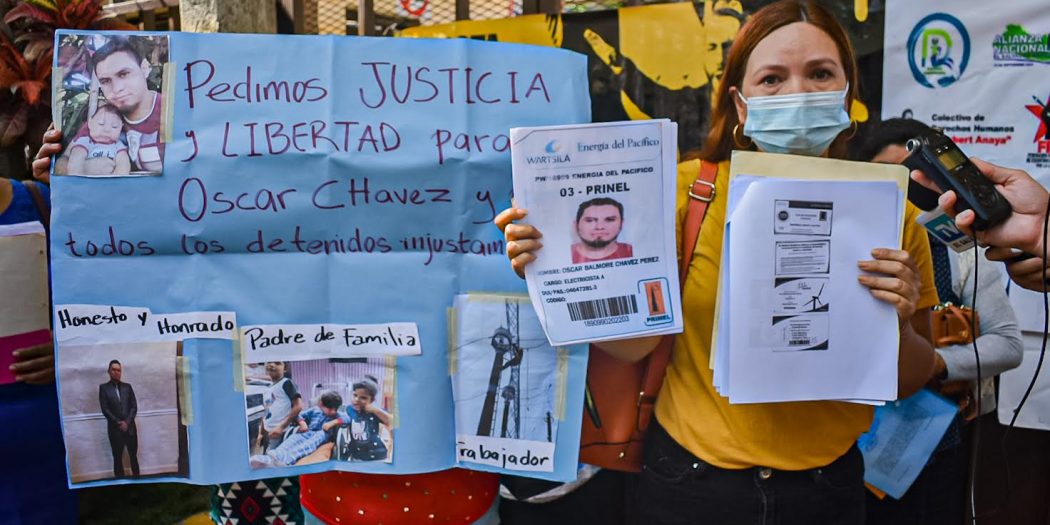 Pedimos JUSTICIA
y LIBERTAD para
OSCAR CHavez y
todos los detenidos injustam
Honesto y Honrado
Padre de Familia
Trabajador
WÄRTSILÄ Energía del Pacífico
ENERGIA DEL PACIFICO
03 - PRINEL
NOMBRE: OSCAR BALMORE CHAVEZ PEREZ
CARGO: ELECTRICISTA A
DUI/PAS.:04647281-3
CODIGO:
1890990202203
PRINEL
ALIANZA
NACIONAL
Colectivo de
Derechos Humanos
bert Anaya"